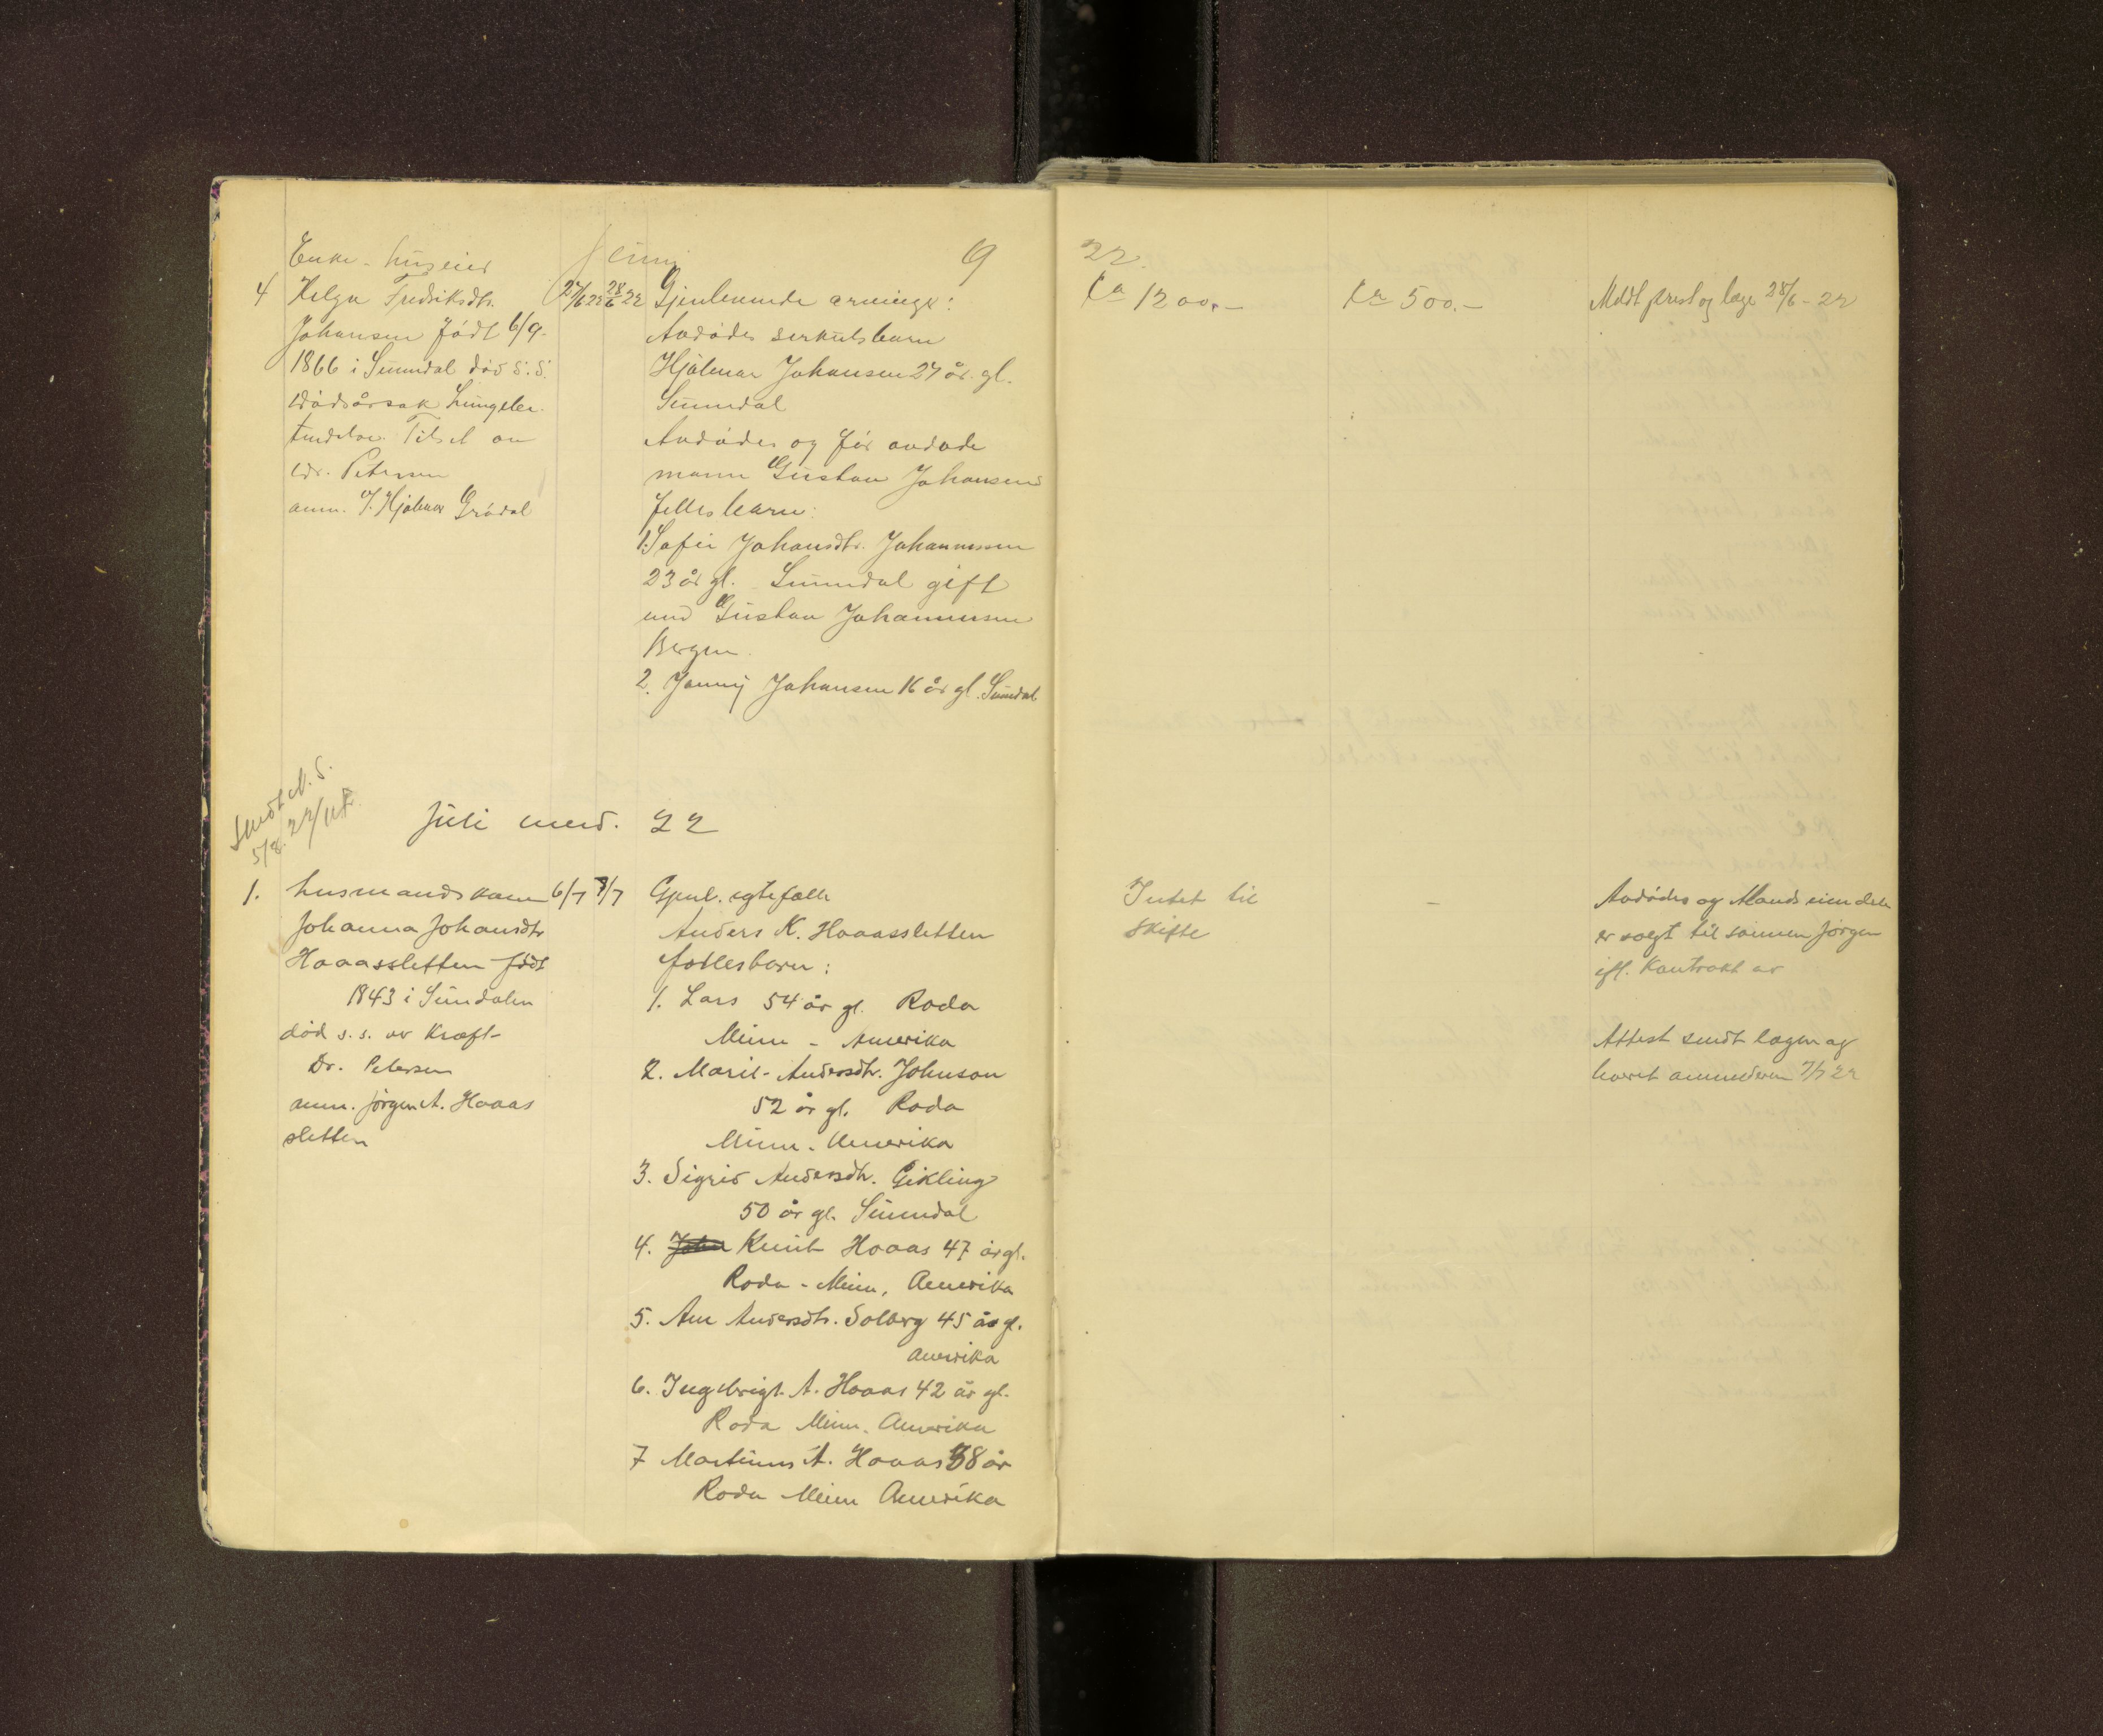 Juni 19 22.
Enke - huseier
4 Helga Fredriksdtr. 27/6 22 28/6 22
Johansen født 6/9.
1866 i Sunndal død s. s.
dødsårsak Lungebe-
tendelse. Tilset av
dr. Petersen
anm. J. Hjalmar Grødal
Gjenlevende arvinge:
Avdødes serkulsbarn
Hjalmar Johansen 27 år. gl.
Sunndal
Avdødes og før avdøde
mann Gustav Johansens
felles barn:
1. Sofie Johansdtr. Johannessen
23 år gl. Sunndal gift
med Gustav Johannessen
Bergen.
2. Jenny Johansen 16 år gl. Sunndal
Ca 1200.-
Ca 500.-
Meldt prest og læge 28/6 - 22
Sendt N. S.
5/8. 22
Juli mnd. 22
1. husmandskone 6/7 7/7
Johanna Johansdtr
Hoaassletten født
1843 i Sundalen
død s. s. av Kræft-
Dr. Petersen
anm. Jørgen A. Hoaas
sletten
Gjenl. egtefælle
Anders K. Hoaassletten
fællesbarn:
1. Lars 54 år gl. Roda
Minn - Amerika
2. Marit Andersdtr. Johnson
52 år gl. Roda
Minn. Amerika
3. Sigrid Andersdtr. Gikling
50 år gl. Sunndal
4. John Knut Hoaas 47 år gl.
Roda - Minn, Amerika
5. Ane Andersdtr. Solberg 45 år gl.
Amerika
6. Ingebrigt A. Hoaas 42 år gl.
Roda Minn. Amerika
7 Martinus A. Hoaas 38 år
Roda Minn Amerika
Intet til
skifte
-
Avdødes og Mands eiendele
er solgt til sønnen Jørgen
ifl. Kontrakt av
Attest sendt lægen og
levert anmelderen 7/7 22